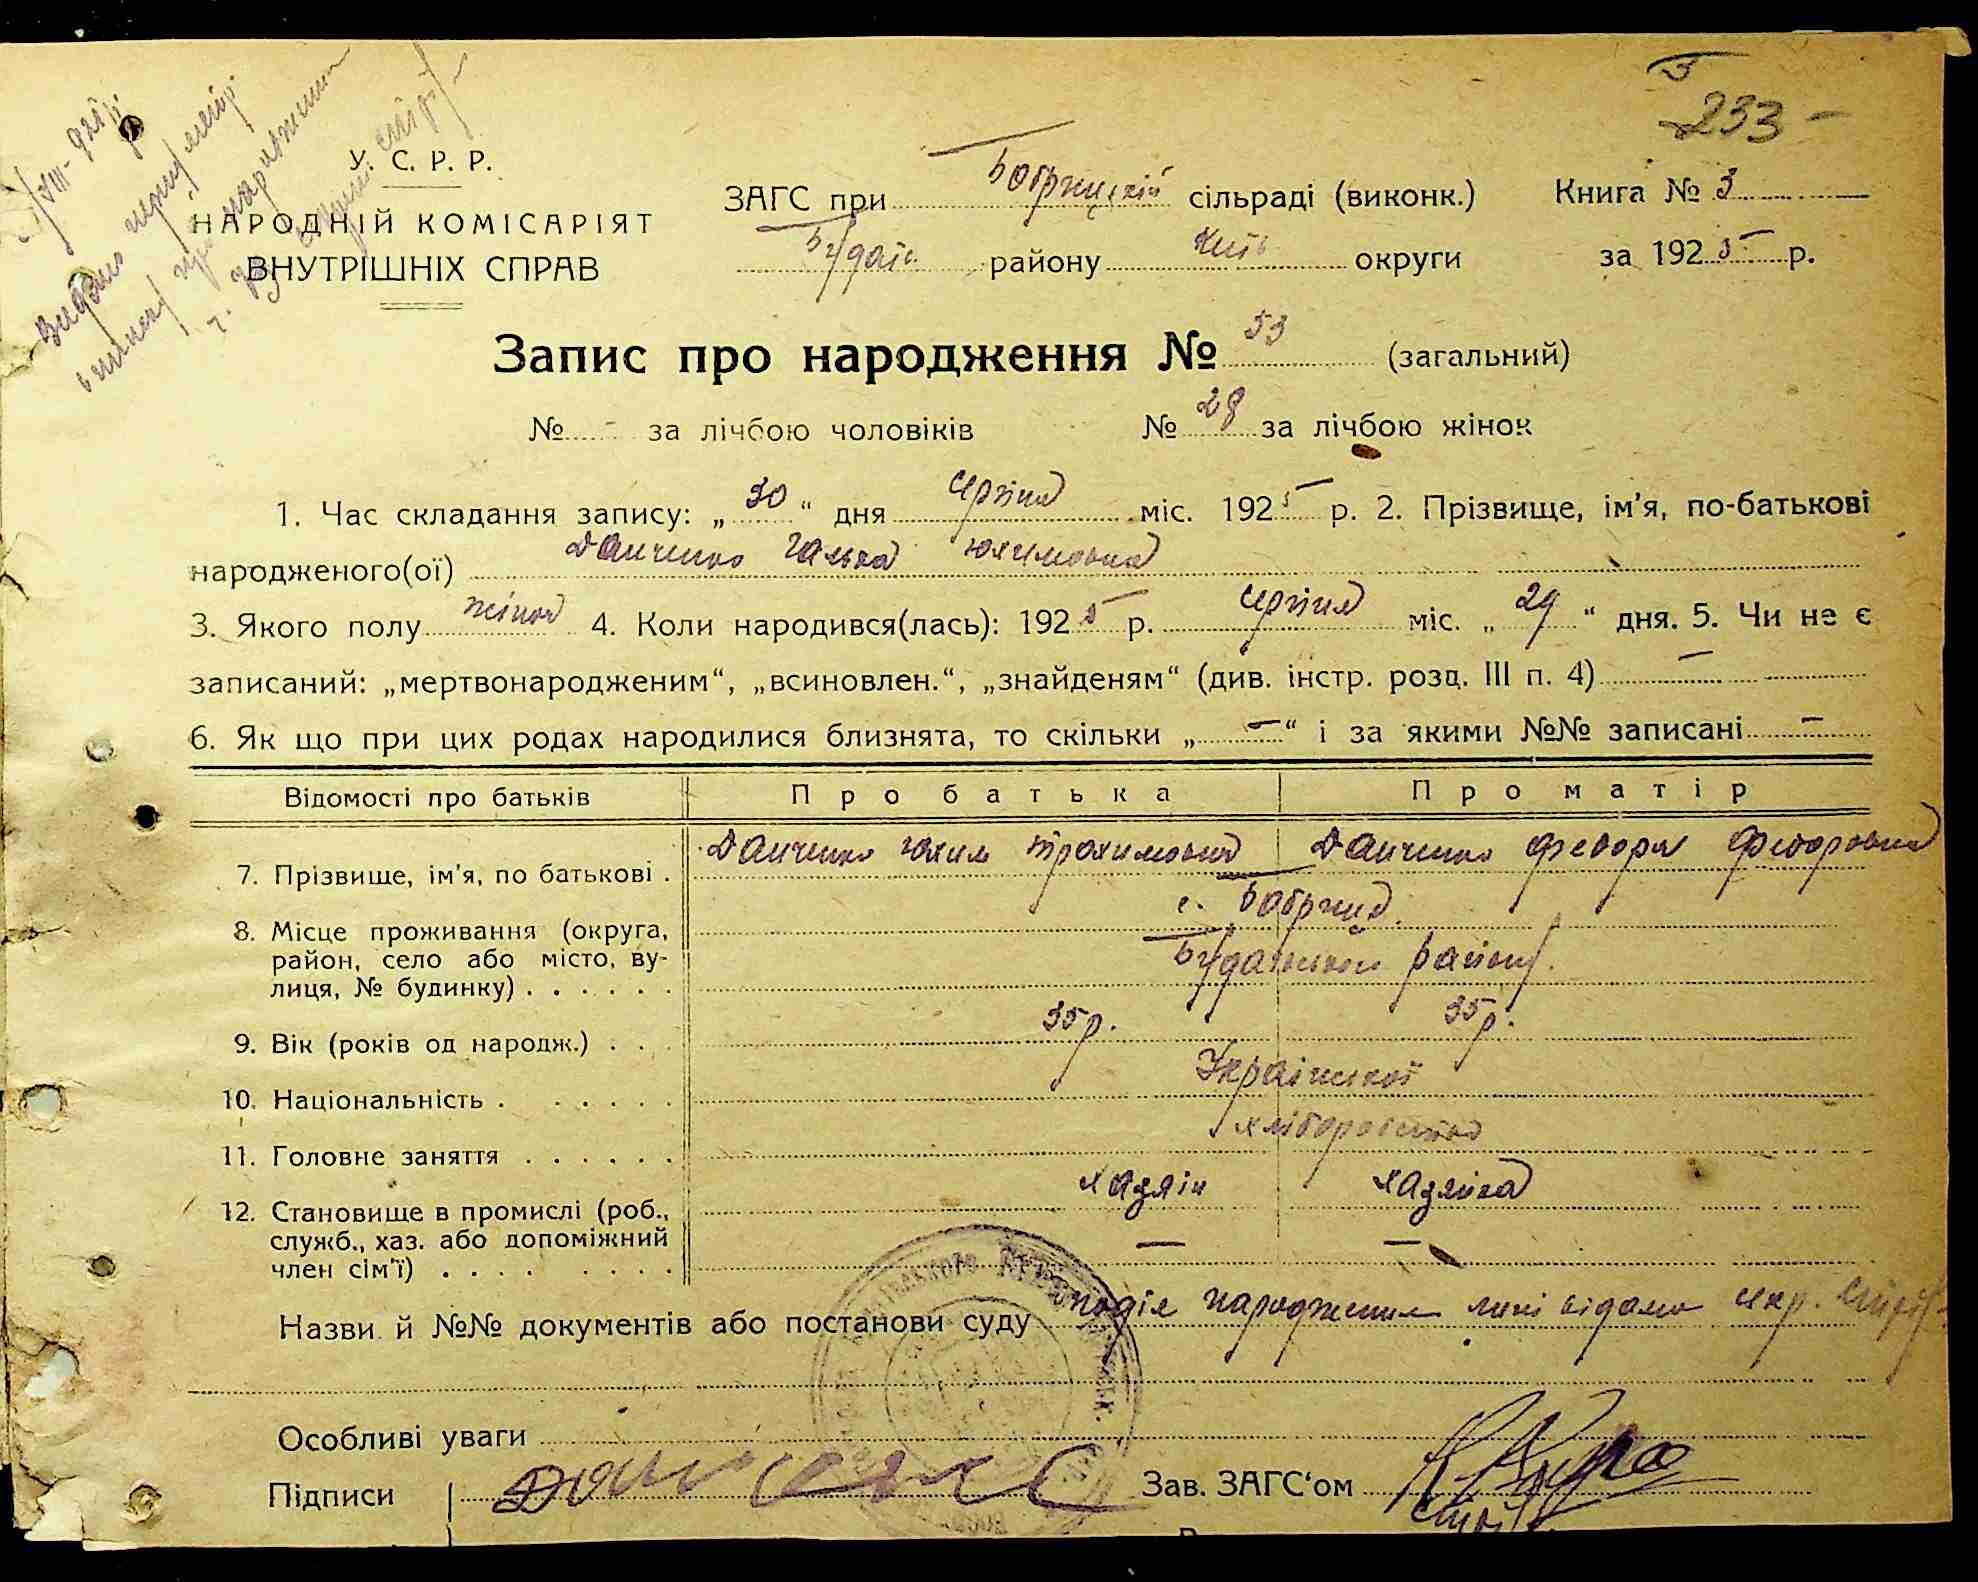 233
У. С. Р. Р.
НАРОДНІЙ КОМІСАРІЯТ
ВНУТРІШНІХ СПРАВ
ЗАГС при Бобрицькій сільраді (виконк.) Книга № 3
Будаїв. району Київ округи за 1925 р.
Запис про народження № 53 (загальний)
№ - за лічбою чоловіків № 28 за лічбою жінок
1. Час складання запису: „30“ дня серпня міс. 1925 р. 2. Прізвище, ім'я, по-батькові
народженого(ої) Данченко Галька Юхимовна
3. Якого полу жіноч 4. Коли народився(лась): 1925 р. серпня міс. „29“ дня. 5. Чи не є
записаний: „мертвонародженим“, „всиновлен.“, „знайденям“ (див. інстр. розд. III п. 4) —
6. Як що при цих родах народилися близнята, то скільки „—“ і за якими №№ записані —
Відомості про батьків Про батька Про матір
7. Прізвище, ім'я, по батькові . Данченко Юхим Трохимович Данченко Федора Федоровна
8. Місце проживання (округа, с. Бобриця
район, село або місто, ву- Будаївського району.
лиця, № будинку) . . . . . .
9. Вік (років од народж.) . . . 35 р. 35 р.
10. Національність . . . . . . Української
11. Головне заняття . . . . . . хліборобство
12. Становище в промислі (роб., хазяїн хазяйка
служб., хаз. або допоміжний — —
член сім'ї) . . . . . . . . .
Назви й №№ документів або постанови суду подія народження мені відома
Особливі уваги
Підписи Зав. ЗАГС'ом